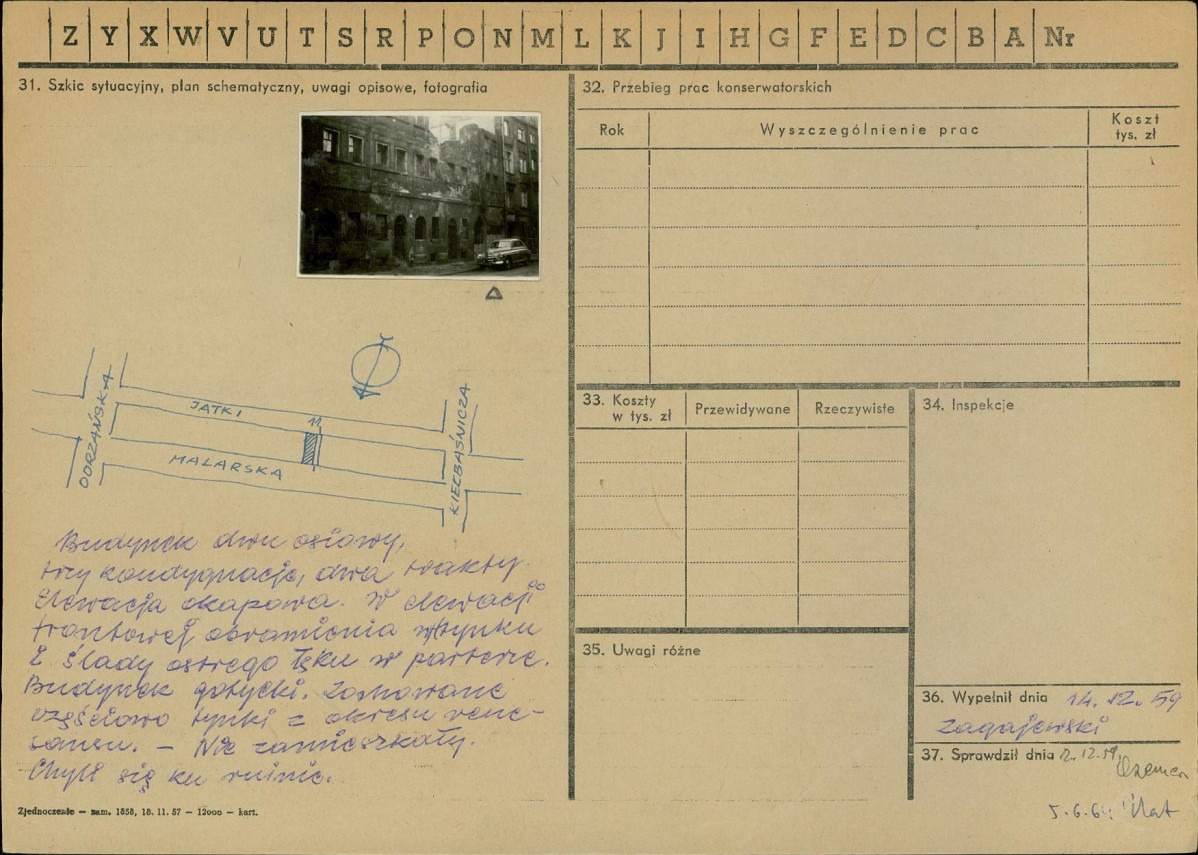 Z Y X W V U T S R P O N M L K J I H G F E D C B A Nr
31. Szkic sytuacyjny, plan schematyczny, uwagi opisowe, fotografia
ODRZAŃSKA
JATKI
11
MALARSKA
KIEŁBAŚNICZA
Budynek dwu osiowy,
trzy kondygnacje, dwa trakty.
Elewacja okapowa. W elewacji
frontowej obramienia w tynku
i ślady ostrego łęku w parterze.
Budynek gotycki. Zachowane
częściowo tynki z okresu rene-
sansu. — Nie zamieszkały.
Chyli się ku ruinie.
Zjednoczenie — zam. 1858, 18. 11. 57 — 12000 — kart.
32. Przebieg prac konserwatorskich
Rok
Wyszczególnienie prac
Koszt
tys. zł
33. Koszty
w tys. zł
Przewidywane
Rzeczywiste
34. Inspekcje
35. Uwagi różne
36. Wypełnił dnia 14. 12. 59
Zagajewski
37. Sprawdził dnia